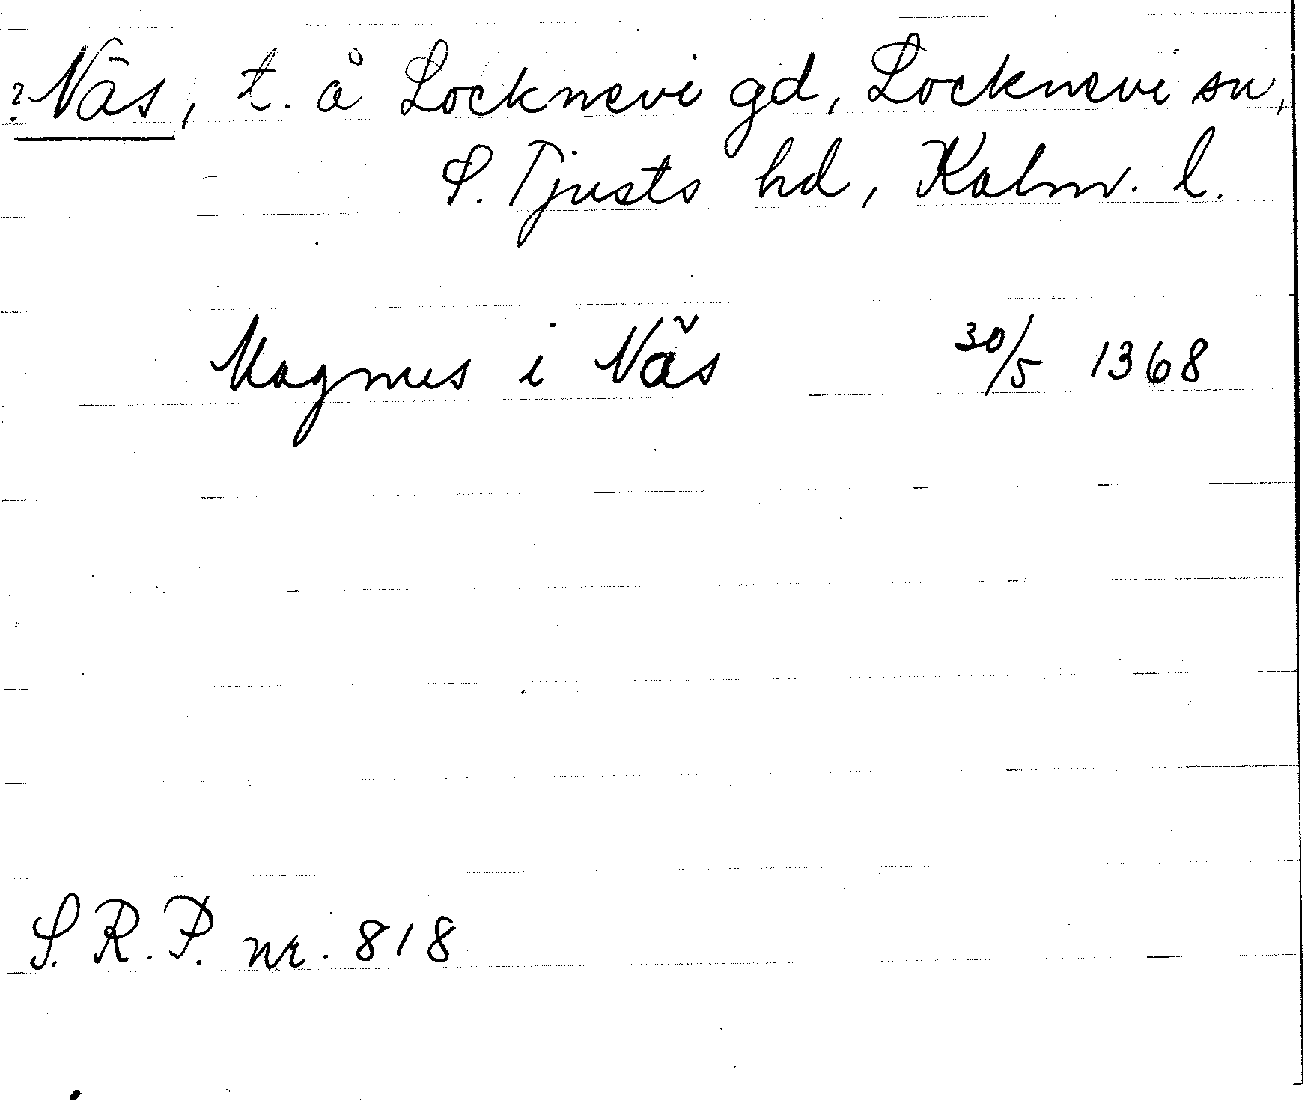 ? Näs, t. å Locknevi gd, Locknevi sn,
S. Tjusts hd, Kalm. l.
Magnus i Näs 30/5 1368
S.R.P. nr. 818